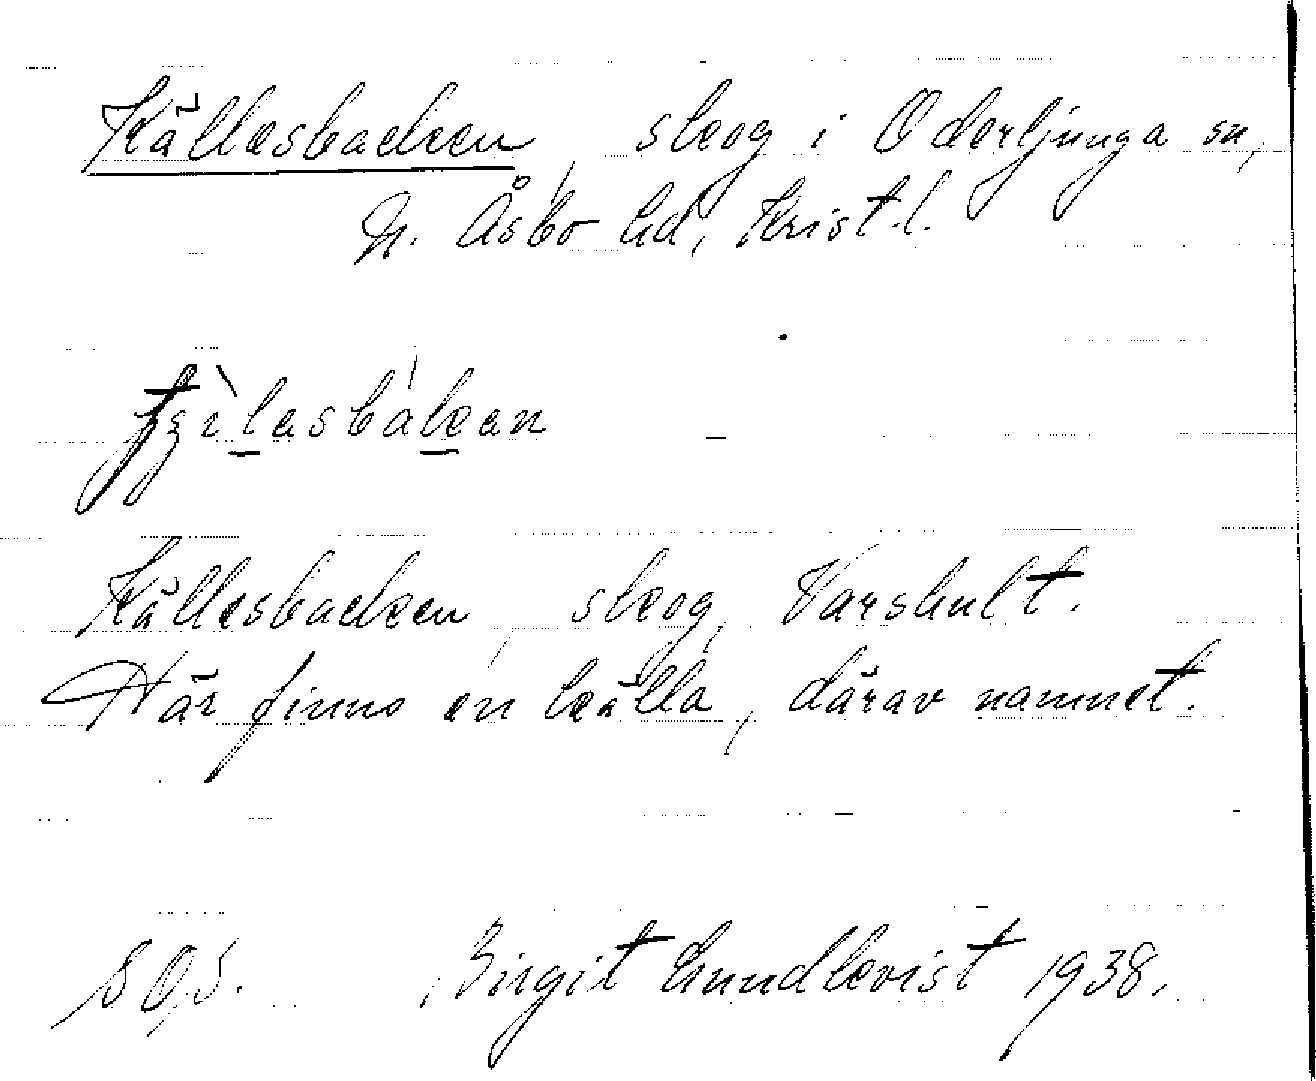 Källesbacken, skog i Oderljunga sn,
N. Åsbo hd, Krist.l.
Källesbacken, skog, Varshult.
Här finns en källa, därav namnet.
Birgit Lundkvist 1938.